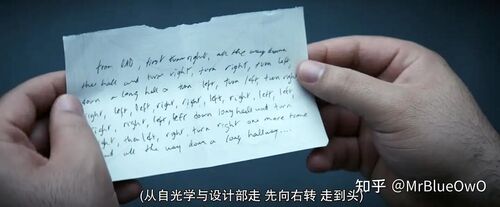 from O&D, first turn right, all the way down
the hall and turn right, turn right, turn left,
down a long hall a turn left, turn left, turn right
right, left, left, right, right, left, right, left, left,
right, right, left, left down long hall and turn
right, then left, right, turn right one more time
and all the way down a long hallway....
(从自光学与设计部走 先向右转 走到头)
知乎 @MrBlueOwO